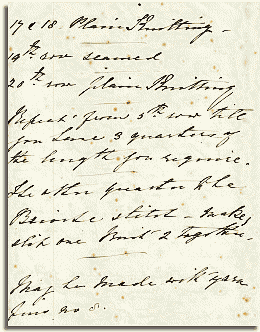 17 & 18 Plain Knitting -
19th row seamed
20th row plain Knitting
Repeat from 5th row till
you have 3 quarters of
the length you require.
The other quarter to be
Brioche stitch - make,
slip one Knit 2 together.
May be made with yarn
pins no 8.